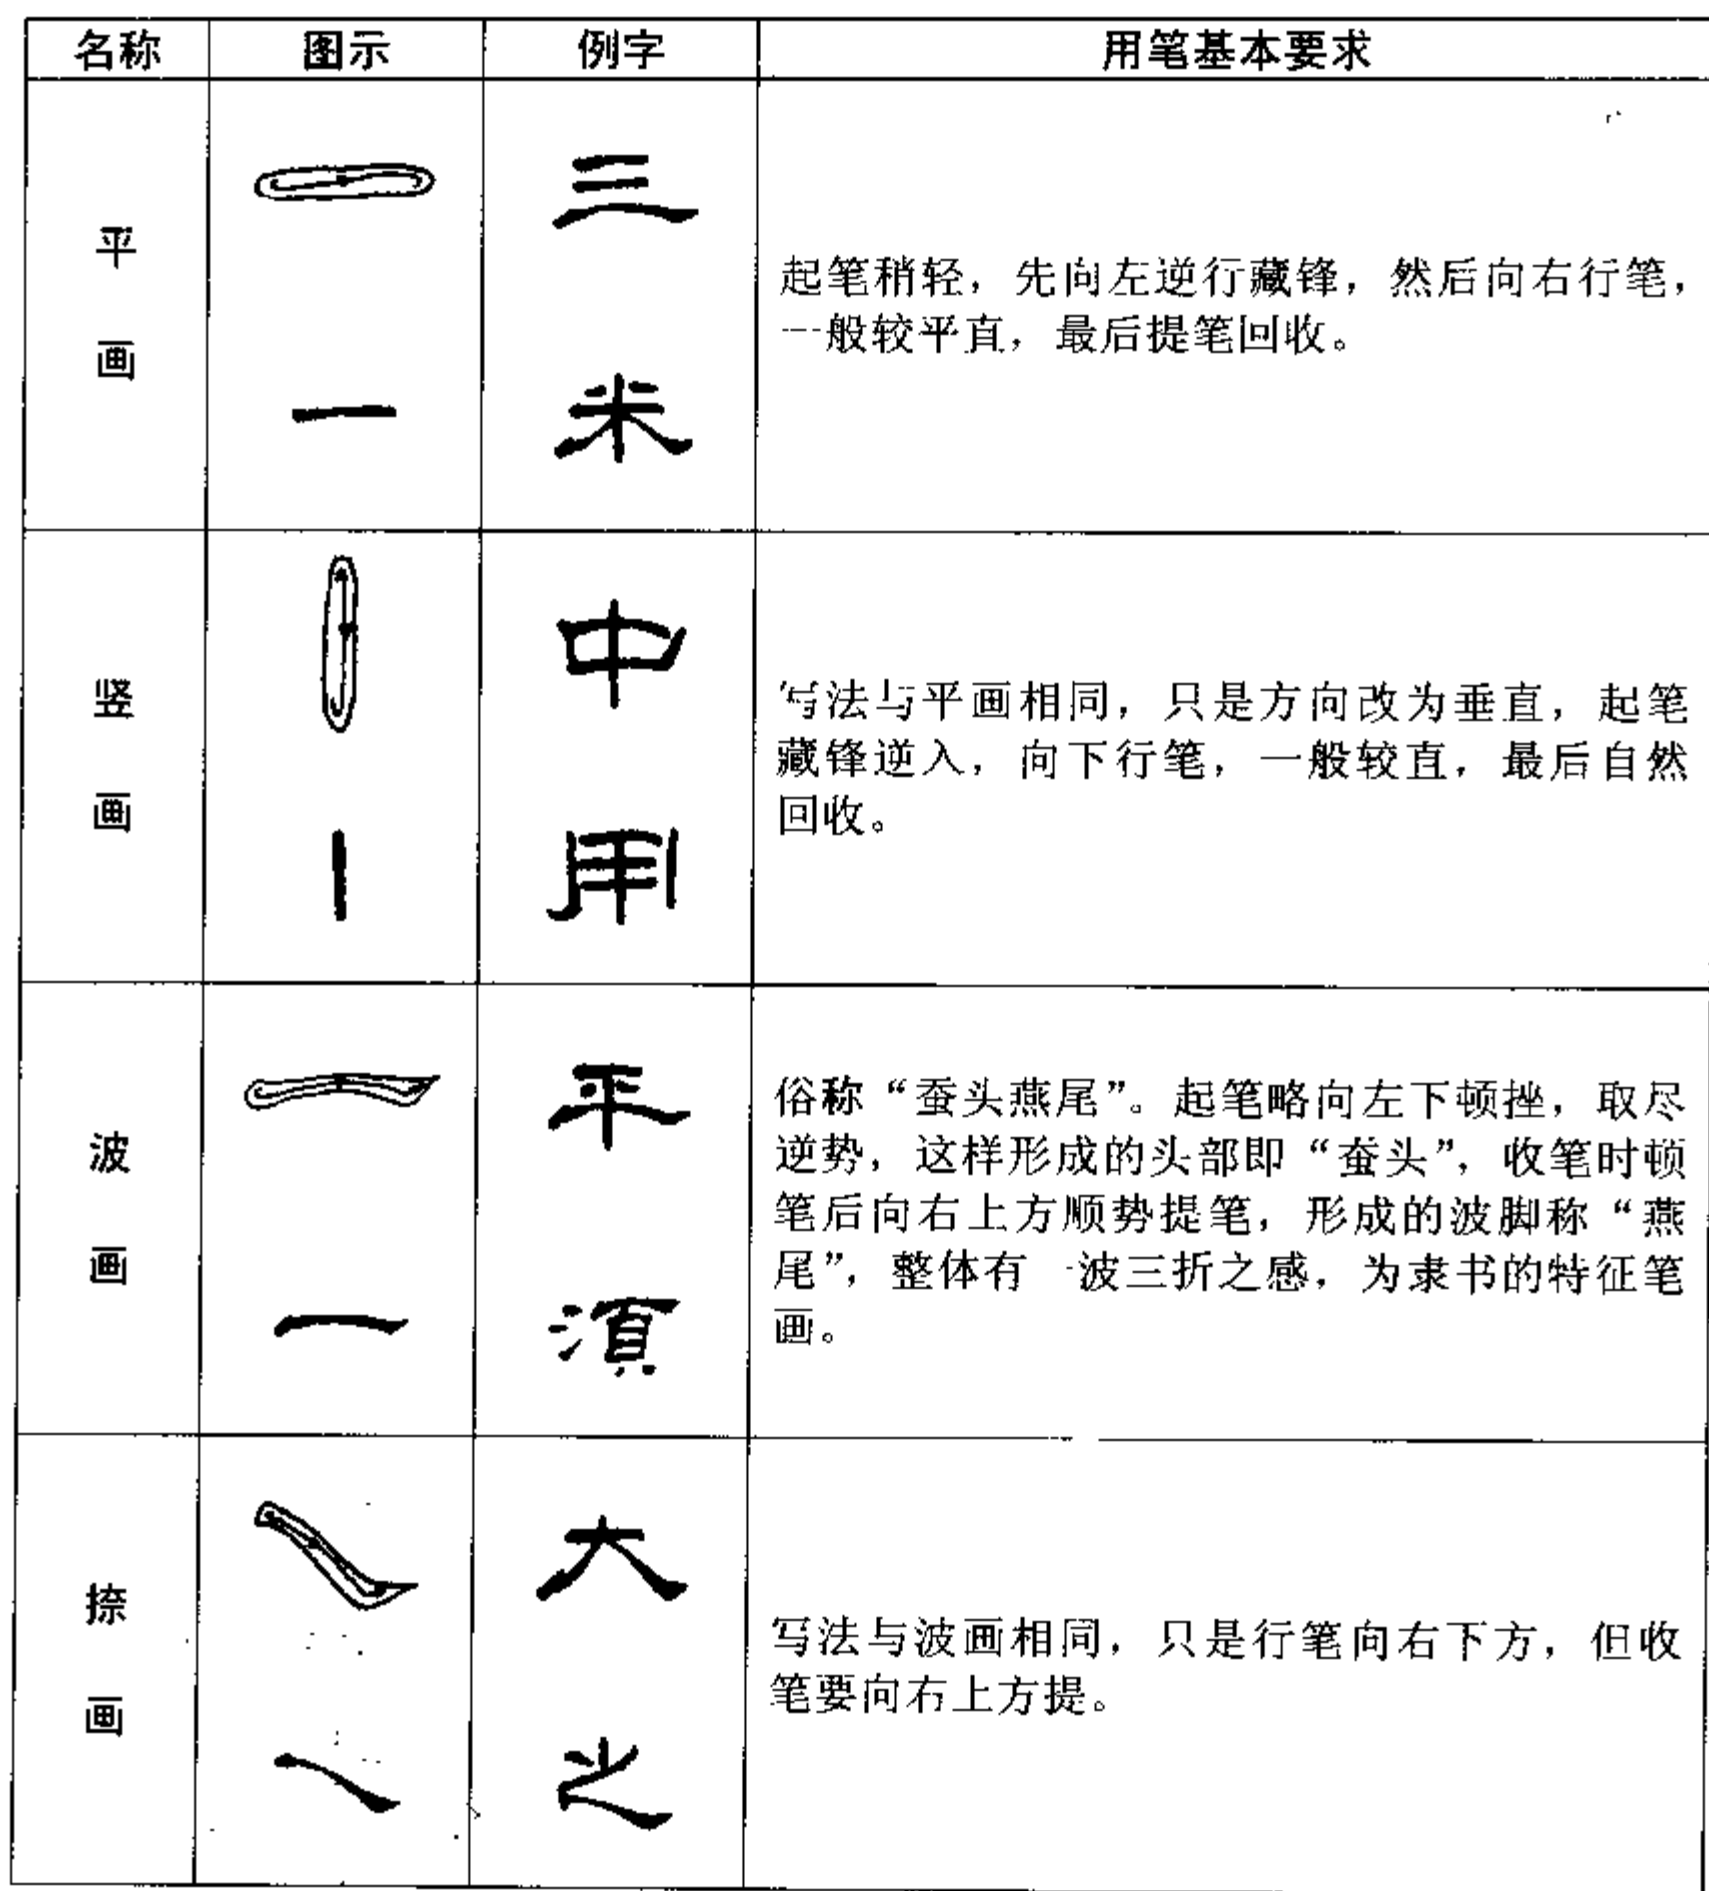 名称 图示 例字 用笔基本要求
平
画
三
米
起笔稍轻，先向左逆行藏锋，然后向右行笔，
一般较平直，最后提笔回收。
一
竖
画
中
用
写法与平画相同，只是方向改为垂直，起笔
藏锋逆入，向下行笔，一般较直，最后自然
回收。
波
画
平
俗称“蚕头燕尾”。起笔略向左下顿挫，取尽
逆势，这样形成的头部即“蚕头”，收笔时顿
笔后向右上方顺势提笔，形成的波脚称“燕
尾”，整体有一波三折之感，为隶书的特征笔
画。
一
須
捺
画
大
之
写法与波画相同，只是行笔向右下方，但收
笔要向右上方提。